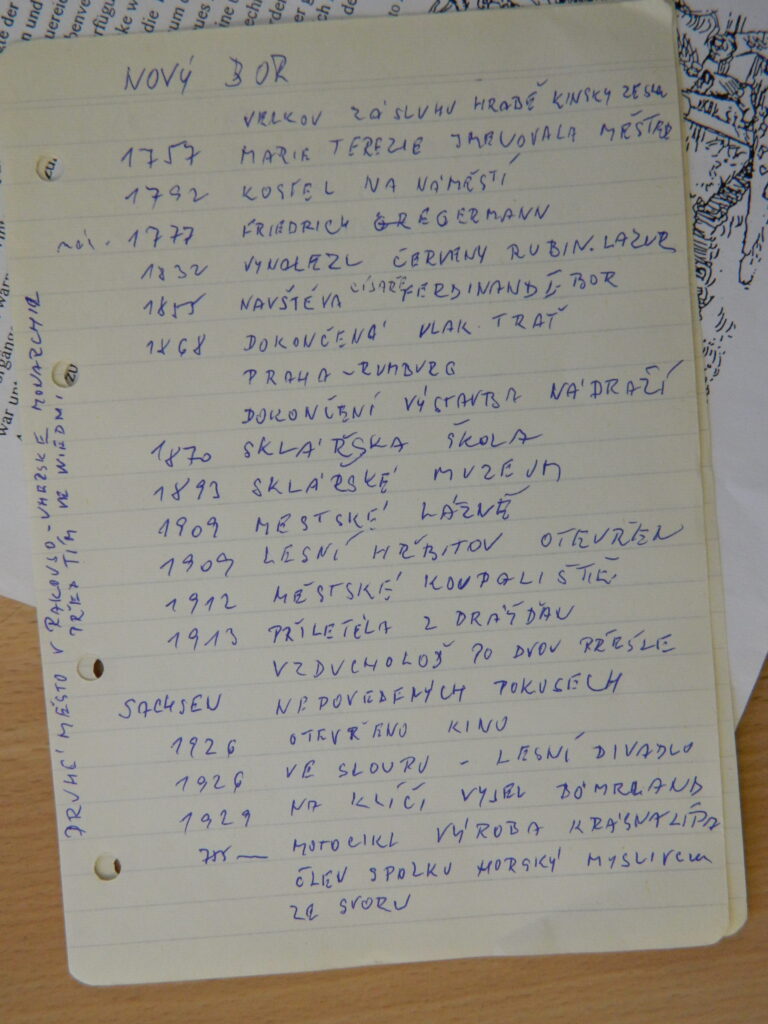 NOVÝ BOR
VELKOU ZÁSLUHU HRABĚ KINSKY
1757 MARIE TEREZIE JMENOVALA MĚSTEM
1792 KOSTEL NA NÁMĚSTÍ
nár. 1777 FRIEDRICH EGERMANN
1832 VYNALEZL ČERVENÝ RUBIN. LAZUR
1855 NAVŠTĚVA CÍSAŘE FERDINAND I BOR
1868 DOKONČENÁ VLAK. TRAŤ
PRAHA - RUMBURG
DOKONČENÍ VÝSTAVBA NÁDRAŽÍ
1870 SKLÁŘSKA ŠKOLA
1893 SKLÁŘSKÉ MUZEUM
1909 MĚSTSKÉ LÁZNĚ
1909 LESNÍ HŘBITOV OTEVŘEN
1912 MĚSTSKÉ KOUPALIŠTĚ
1913 PŘILETĚLA Z DRÁŽĎAN
VZDUCHOLOĎ PO DVOU
SACHSEN NEPOVEDENÝCH POKUSECH
1926 OTEVŘENO KINO
1926 VE SLOUPU - LESNÍ DIVADLO
1929 NA KLÍČ VYJEL
MOTOCIKL VÝROBA KRÁSNÁ LÍPA
ČLEN SPOLKU HORSKÝ MYSLIVEC
ZE SVORU
DRUHÉ MĚSTO V RAKOUSO-UHERSKÉ MONARCHIE
PŘED TÍM VE WIEDNI